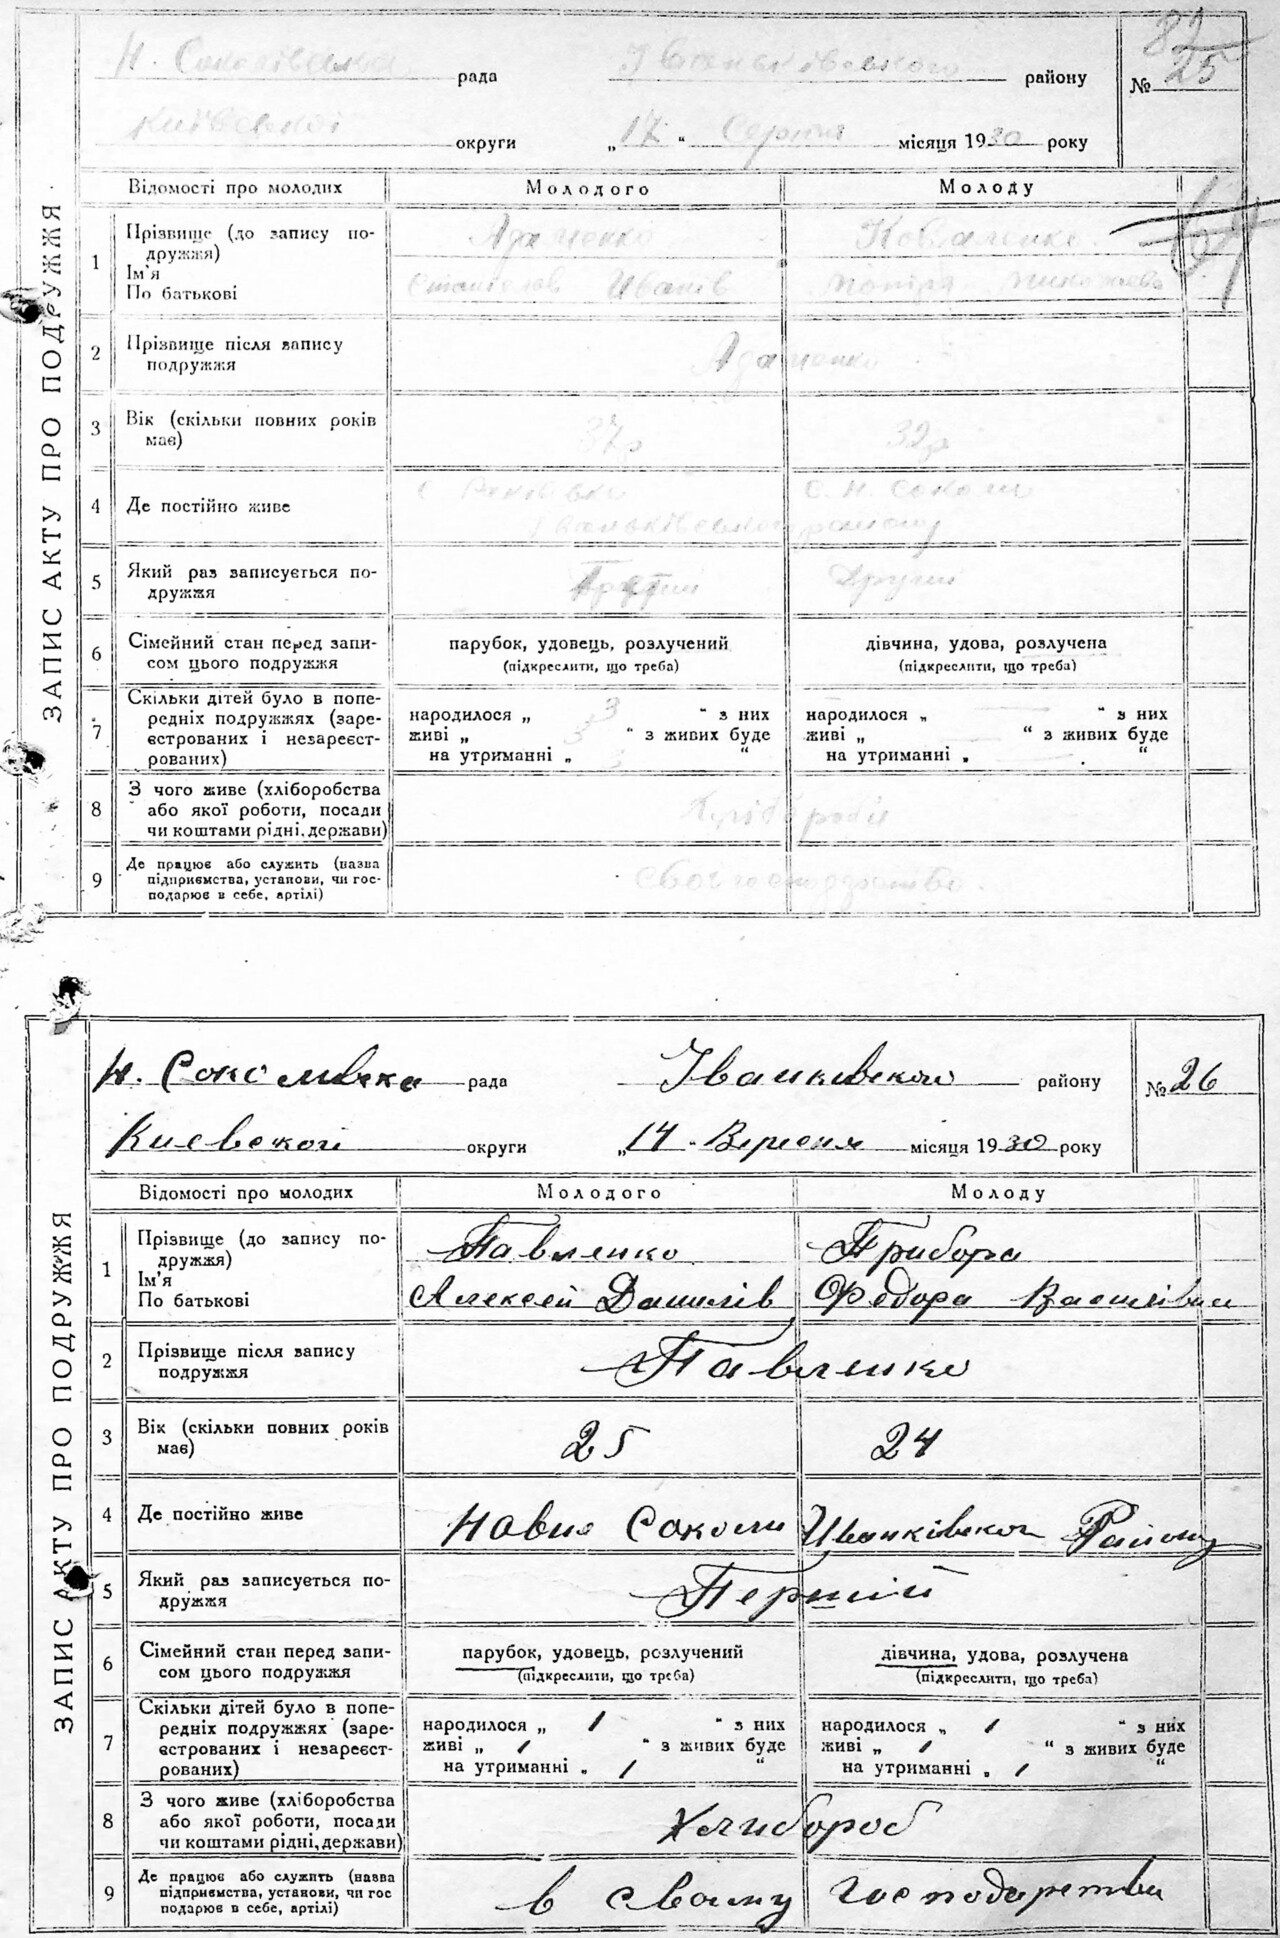 ЗАПИС АКТУ ПРО ПОДРУЖЖЯ
Н. Соколівська рада Іваньківського району № 25
Київської округи „17“ Серпня місяця 1930 року
Відомості про молодих Молодого Молоду
1 Прізвище (до запису подружжя) Адаменко Коваленко
Ім'я
По батькові Іванів Миколаева
2 Прізвище після запису
подружжя Адаменко
3 Вік (скільки повних років
має) 37р 32р
4 Де постійно живе с. Н. Соколи
Іваньківського району
5 Який раз записується по-
дружжя Третий Другий
6 Сімейний стан перед запи-
сом цього подружжя
парубок, удовець, розлучений дівчина, удова, розлучена
(підкреслити, що треба) (підкреслити, що треба)
7 Скільки дітей було в попе-
редніх подружжях (заре-
єстрованих і незареєст-
рованих)
народилося „ 3 “ з них народилося „ — “ з них
живі „ 3 “ з живих буде живі „ — “ з живих буде
на утриманні „ 3 “ на утриманні „ — “
8 З чого живе (хліборобства
або якої роботи, посади
чи коштами рідні, держави)
9 Де працює або служить (назва
підприємства, установи, чи гос-
подарює в себе, артілі) господарство.
ЗАПИС АКТУ ПРО ПОДРУЖЖЯ
Н. Соколивска рада Іванкивского району № 26
Киевской округи „14“ Вересня місяця 1930 року
Відомості про молодих Молодого Молоду
1 Прізвище (до запису по-
дружжя) Павленко Прибора
Ім'я
По батькові Алексей Данилів Федора Василівна
2 Прізвище після запису
подружжя Павленко
3 Вік (скільки повних років
має) 25 24
4 Де постійно живе Нови Соколи Иванківског Району
5 Який раз записується по-
дружжя Перший
6 Сімейний стан перед запи-
сом цього подружжя
парубок, удовець, розлучений дівчина, удова, розлучена
(підкреслити, що треба) (підкреслити, що треба)
7 Скільки дітей було в попе-
редніх подружжях (заре-
єстрованих і незареєст-
рованих)
народилося „ / “ з них народилося „ / “ з них
живі „ / “ з живих буде живі „ / “ з живих буде
на утриманні „ / “ на утриманні „ / “
8 З чого живе (хліборобства
або якої роботи, посади
чи коштами рідні, держави) Хлибороб
9 Де працює або служить (назва
підприємства, установи, чи гос
подарює в себе, артілі) в своиму господарстви